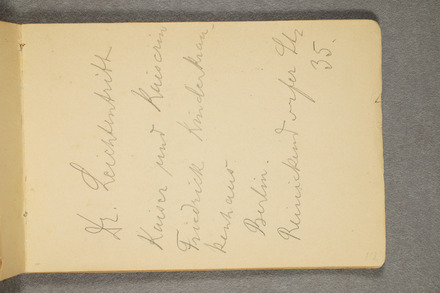 Dr. Leichtentritt
Kaiser und Kaiserin
Friedrich Kinderkran-
kenhaus
Berlin.
Reinickendorfer Str
35.